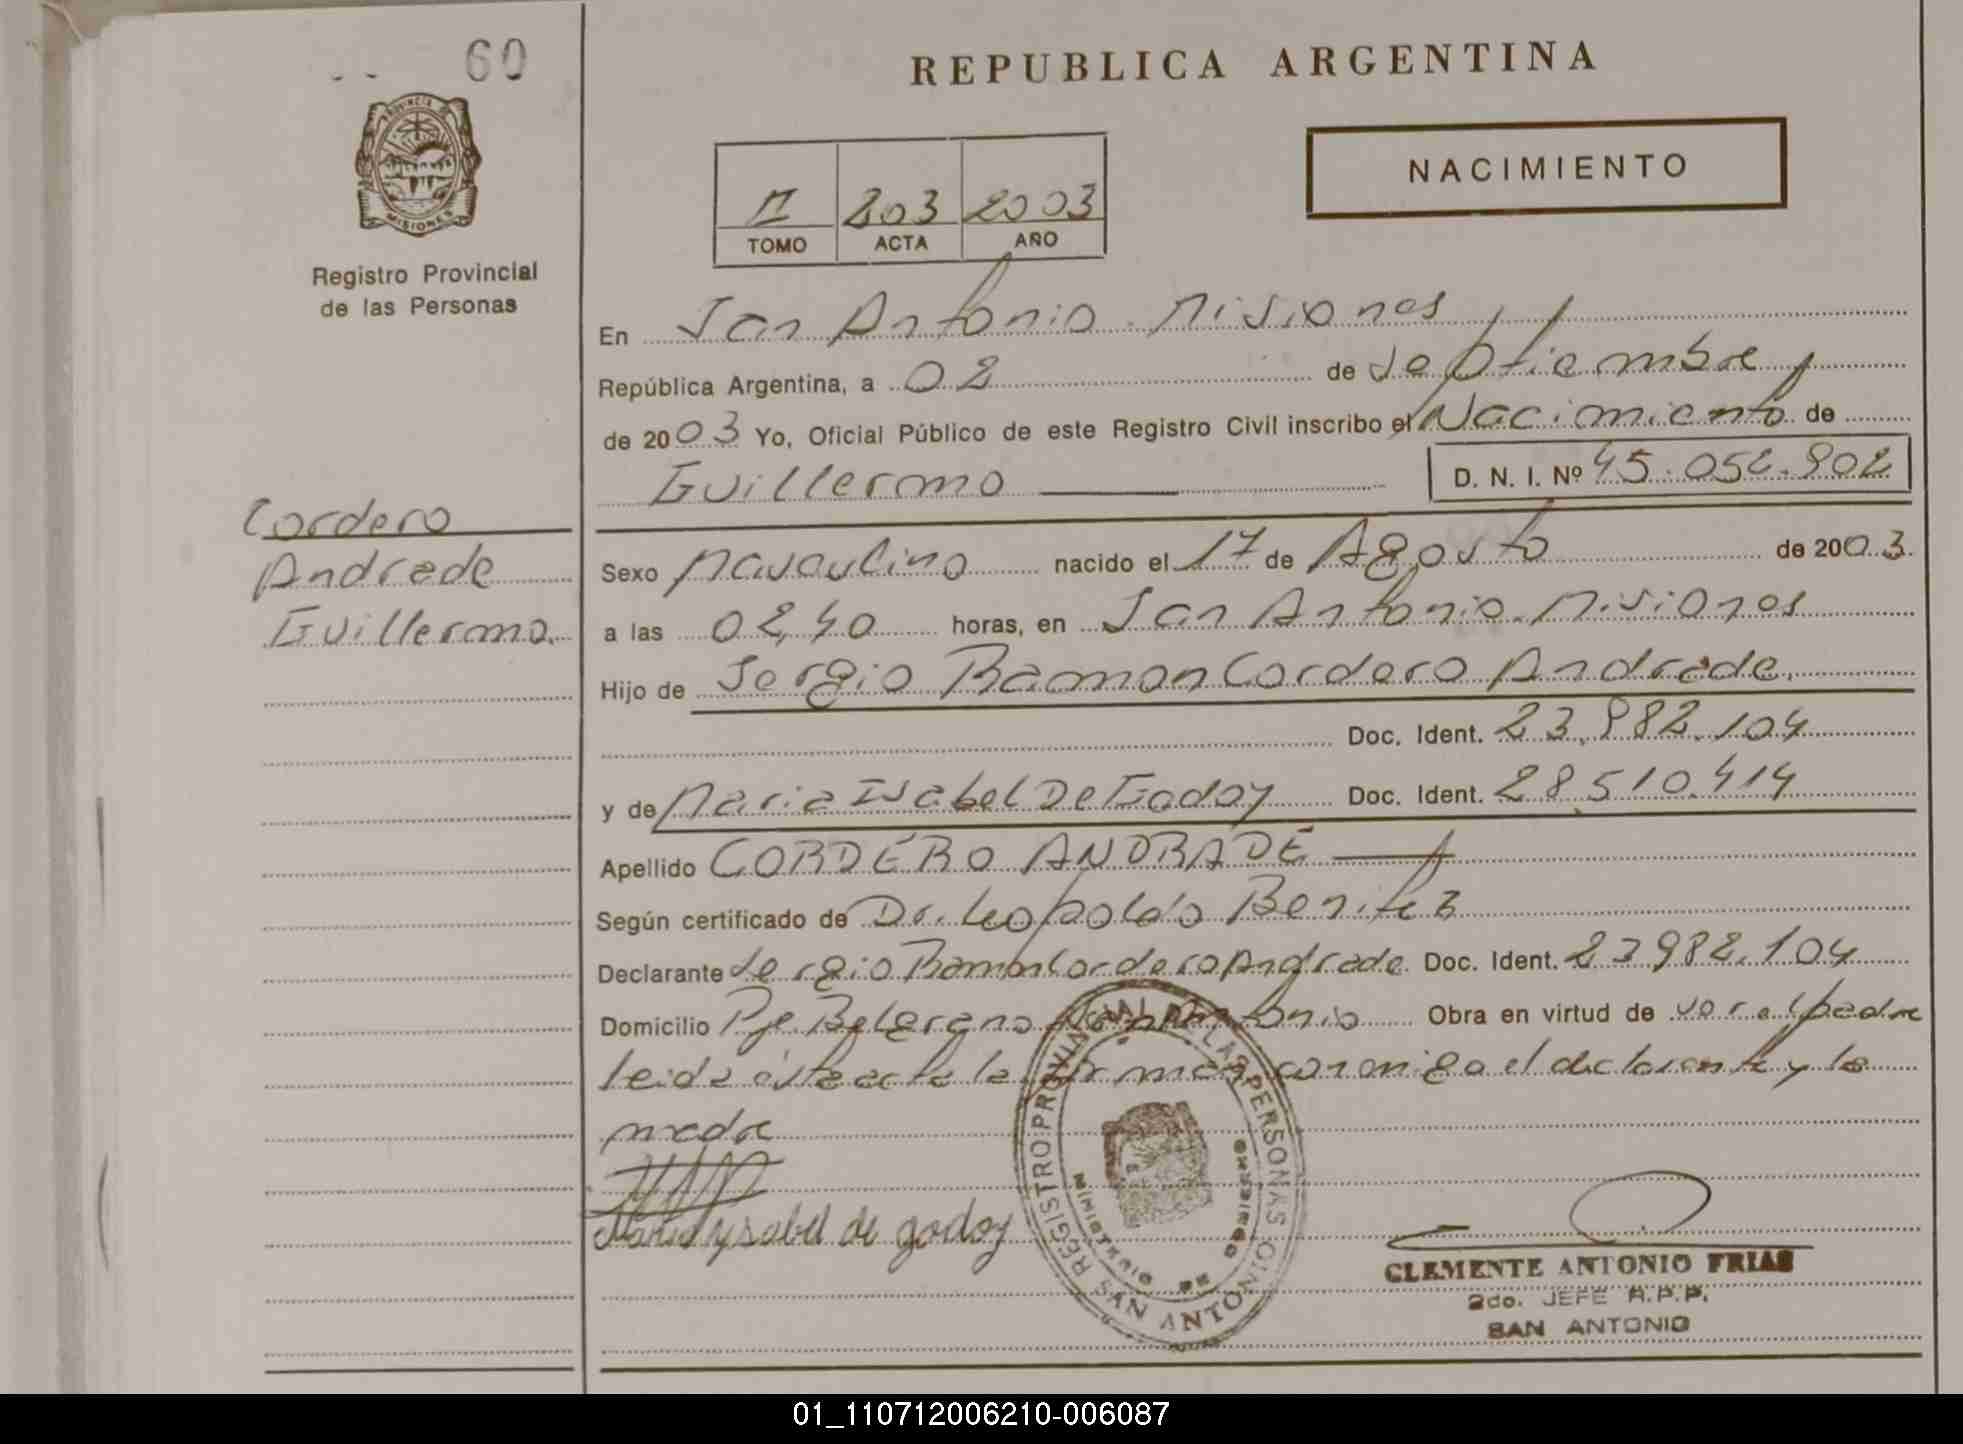 60
REPUBLICA ARGENTINA
NACIMIENTO
PROVINCIA DE
MISIONES
II 203 2003
TOMO ACTA AÑO
Registro Provincial
de las Personas
En San Antonio. Misiones
República Argentina, a 02 de Septiembre
de 2003 Yo, Oficial Público de este Registro Civil inscribo el Nacimiento de
Guillermo D. N. I. Nº 45.052.802
Cordero
Andrade
Guillermo.
Sexo Masculino nacido el 17 de Agosto de 2003.
a las 02,40 horas, en San Antonio. Misiones
Hijo de Sergio Ramon Cordero Andrade.
Doc. Ident. 23.982.104
y de Maria Isabel De Godoy Doc. Ident. 28.510.414
Apellido CORDERO ANDRADE
Según certificado de Dr. Leopoldo Benitez
Declarante Sergio Ramon Cordero Andrade. Doc. Ident. 23982.104
Domicilio Pje. Belgrano San Antonio Obra en virtud de ser el padre
leida ésta acta la firman conmigo el declarante y la
madre
Maria ysabel de godoy
REGISTRO PROVINCIAL DE LAS PERSONAS
MINISTERIO DE GOBIERNO
SAN ANTONIO
CLEMENTE ANTONIO FRIAS
2do. JEFE R.P.P.
SAN ANTONIO
01_110712006210-006087